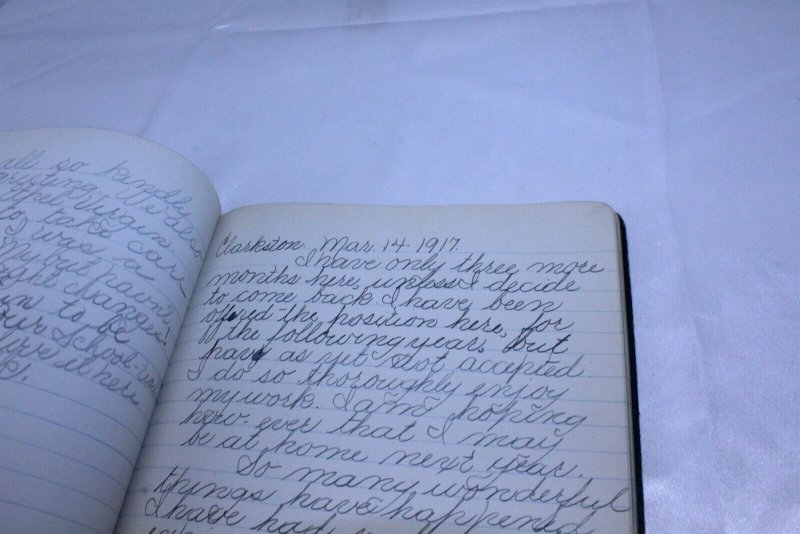 all so kindly
greeting
to take care
I was a
My but haven't
changes!
to be
our School
here
Clarkston. Mar. 14-1917.
I have only three more
months here, unless I decide
to come back I have been
offered the position here, for
the following year, but
have as yet not accepted
I do so thoroughly enjoy
my work. I am hoping
how-ever that I may
be at home next year.
So many wonderful
things have happened
I have had